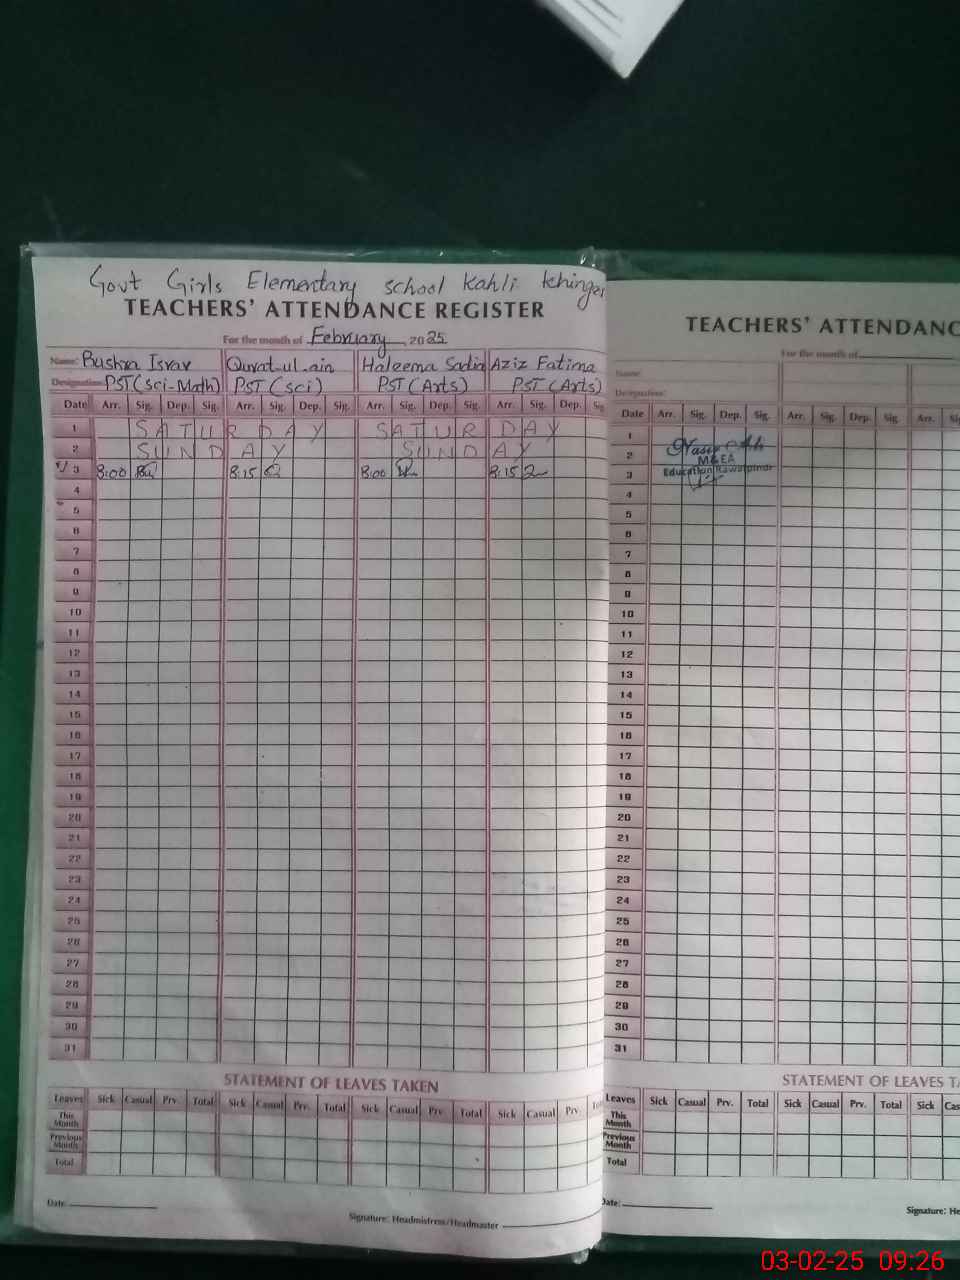 Govt Girls Elementary school Kahli Khinger
TEACHERS' ATTENDANCE REGISTER
For the month of February 2025
Name: Bushra Israr Qurat-ul-ain Haleema Sadia Aziz Fatima
Designation: PST(Sci-Math) PST (Sci) PST (Arts) PST (Arts)
Date Arr. Sig. Dep. Sig. Arr. Sig. Dep. Sig. Arr. Sig. Dep. Sig. Arr. Sig. Dep. Sig
1 SATURDAY SATURDAY
2 SUNDAY SUNDAY
3 8:00 8:15 8:00 8:15
4
5
6
7
8
9
10
11
12
13
14
15
16
17
18
19
20
21
22
23
24
25
26
27
28
29
30
31
STATEMENT OF LEAVES TAKEN
Leaves Sick Casual Prv. Total Sick Casual Prv. Total Sick Casual Prv. Total Sick Casual Prv.
This Month
Previous Month
Total
Date:
Signature: Headmistress/Headmaster
TEACHERS' ATTENDANC
For the month of
Name:
Designation:
Date Arr. Sig. Dep. Sig. Arr. Sig. Dep. Sig. Arr.
1
2
M&EA
3 Education Rawalpindi
4
5
6
7
8
9
10
11
12
13
14
15
16
17
18
19
20
21
22
23
24
25
26
27
28
29
30
31
STATEMENT OF LEAVES TA
Leaves Sick Casual Prv. Total Sick Casual Prv. Total Sick Cas
This Month
Previous Month
Total
Date:
Signature: He
03-02-25 09:26